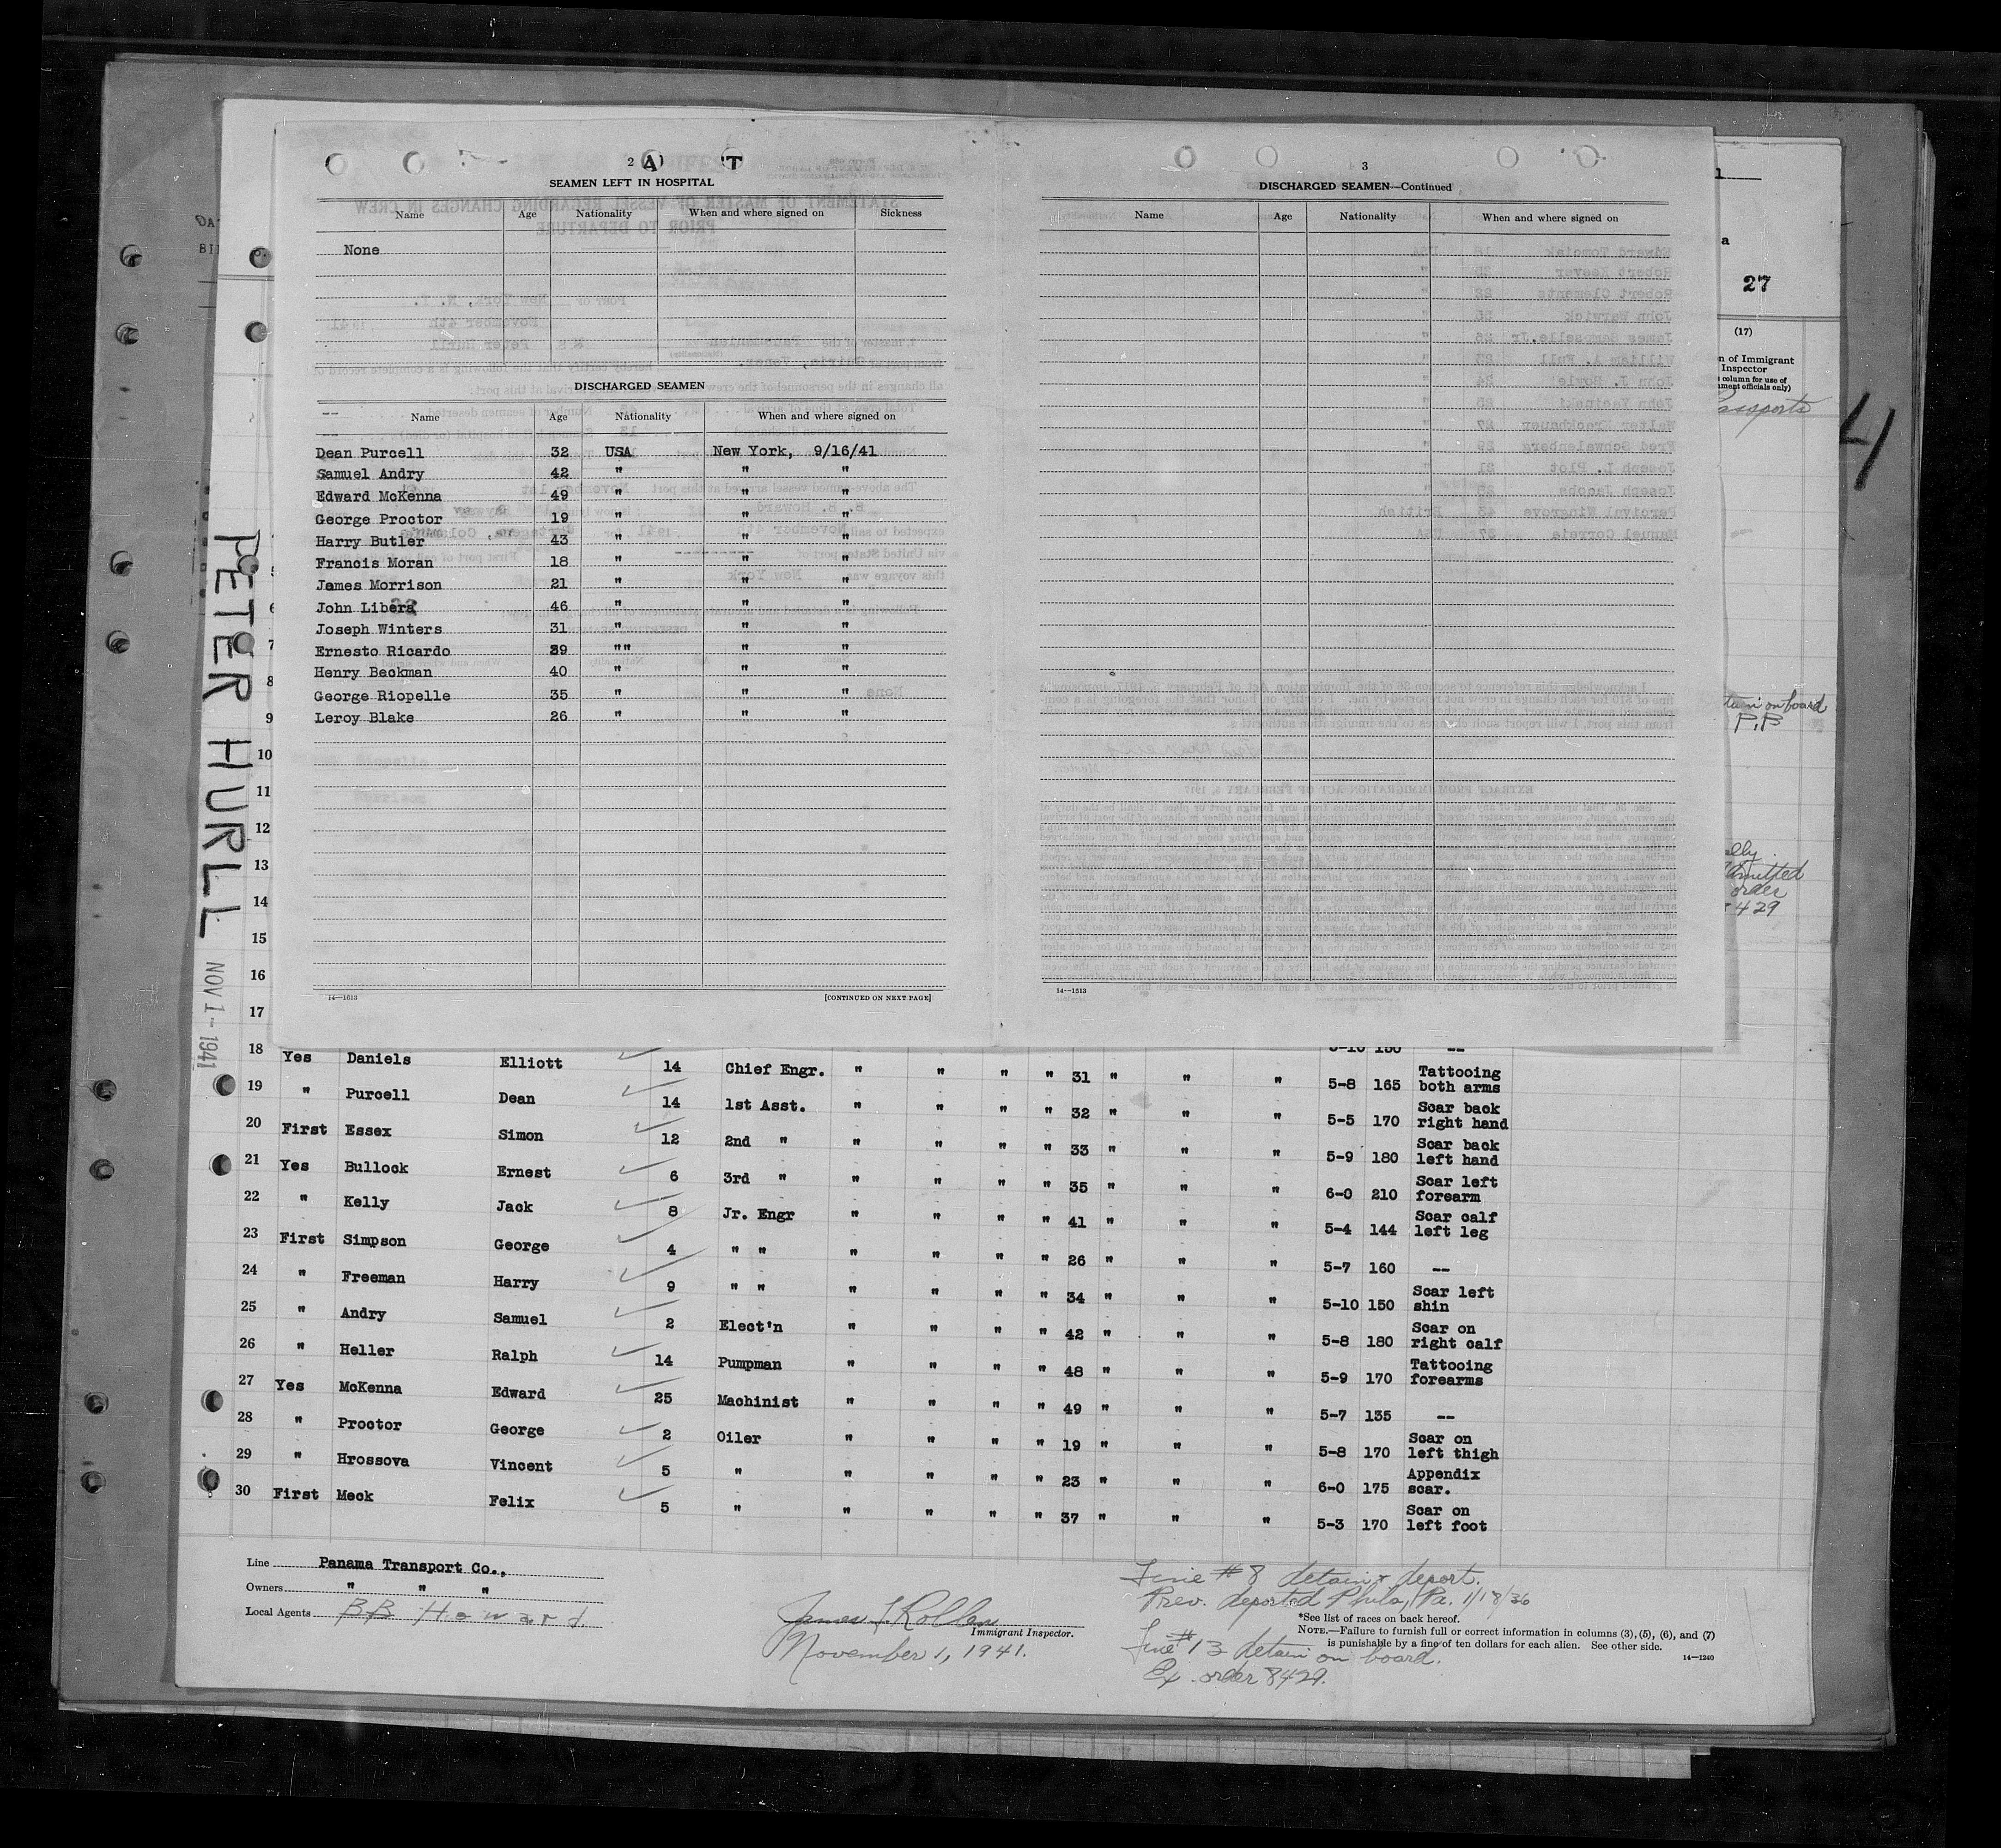 2 A T
SEAMEN LEFT IN HOSPITAL
Name Age Nationality When and where signed on Sickness
None
DISCHARGED SEAMEN
Name Age Nationality When and where signed on
Dean Purcell 32 USA New York, 9/16/41
Samuel Andry 42 " " "
Edward McKenna 49 " " "
George Proctor 19 " " "
Harry Butler 43 " " "
Francis Moran 18 " " "
James Morrison 21 " " "
John Libera 46 " " "
Joseph Winters 31 " " "
Ernesto Ricardo 39 "" " "
Henry Beckman 40 " " "
George Riopelle 35 " " "
Leroy Blake 26 " " "
14—1613 [CONTINUED ON NEXT PAGE]
3
DISCHARGED SEAMEN—Continued
Name Age Nationality When and where signed on
14—1613
27
(17)
n of Immigrant
Inspector
column for use of
ment officials only)
4
on board
P.B
order
429
PETER HURLL NOV 1 - 1941
5
6
7
8
9
10
11
12
13
14
15
16
17
18 Yes Daniels Elliott 14 Chief Engr. " " " " 31 " " " 5-8 165 Tattooing both arms
19 " Purcell Dean 14 1st Asst. " " " " 32 " " " 5-5 170 Scar back right hand
20 First Essex Simon 12 2nd " " " " " 33 " " " 5-9 180 Scar back left hand
21 Yes Bullock Ernest 6 3rd " " " " " 35 " " " 6-0 210 Scar left forearm
22 " Kelly Jack 8 Jr. Engr " " " " 41 " " " 5-4 144 Scar calf left leg
23 First Simpson George 4 " " " " " " 26 " " " 5-7 160 --
24 " Freeman Harry 9 " " " " " " 34 " " " 5-10 150 Scar left shin
25 " Andry Samuel 2 Elect'n " " " " 42 " " " 5-8 180 Scar on right calf
26 " Heller Ralph 14 Pumpman " " " " 48 " " " 5-9 170 Tattooing forearms
27 Yes McKenna Edward 25 Machinist " " " " 49 " " " 5-7 135 --
28 " Proctor George 2 Oiler " " " " 19 " " " 5-8 170 Scar on left thigh
29 " Hrossova Vincent 5 " " " " " 23 " " " 6-0 175 Appendix scar.
30 First Meck Felix 5 " " " " " 37 " " " 5-3 170 Scar on left foot
Line Panama Transport Co.,
Owners " " "
Local Agents BB Howard.
Immigrant Inspector.
November 1, 1941.
Line #8 detain & deport.
Prev. deported Phila, Pa. 1/18/36
*See list of races on back hereof.
NOTE.—Failure to furnish full or correct information in columns (3), (5), (6), and (7)
is punishable by a fine of ten dollars for each alien. See other side.
14—1240
Line #13 detain on board.
Ex. order 8429.